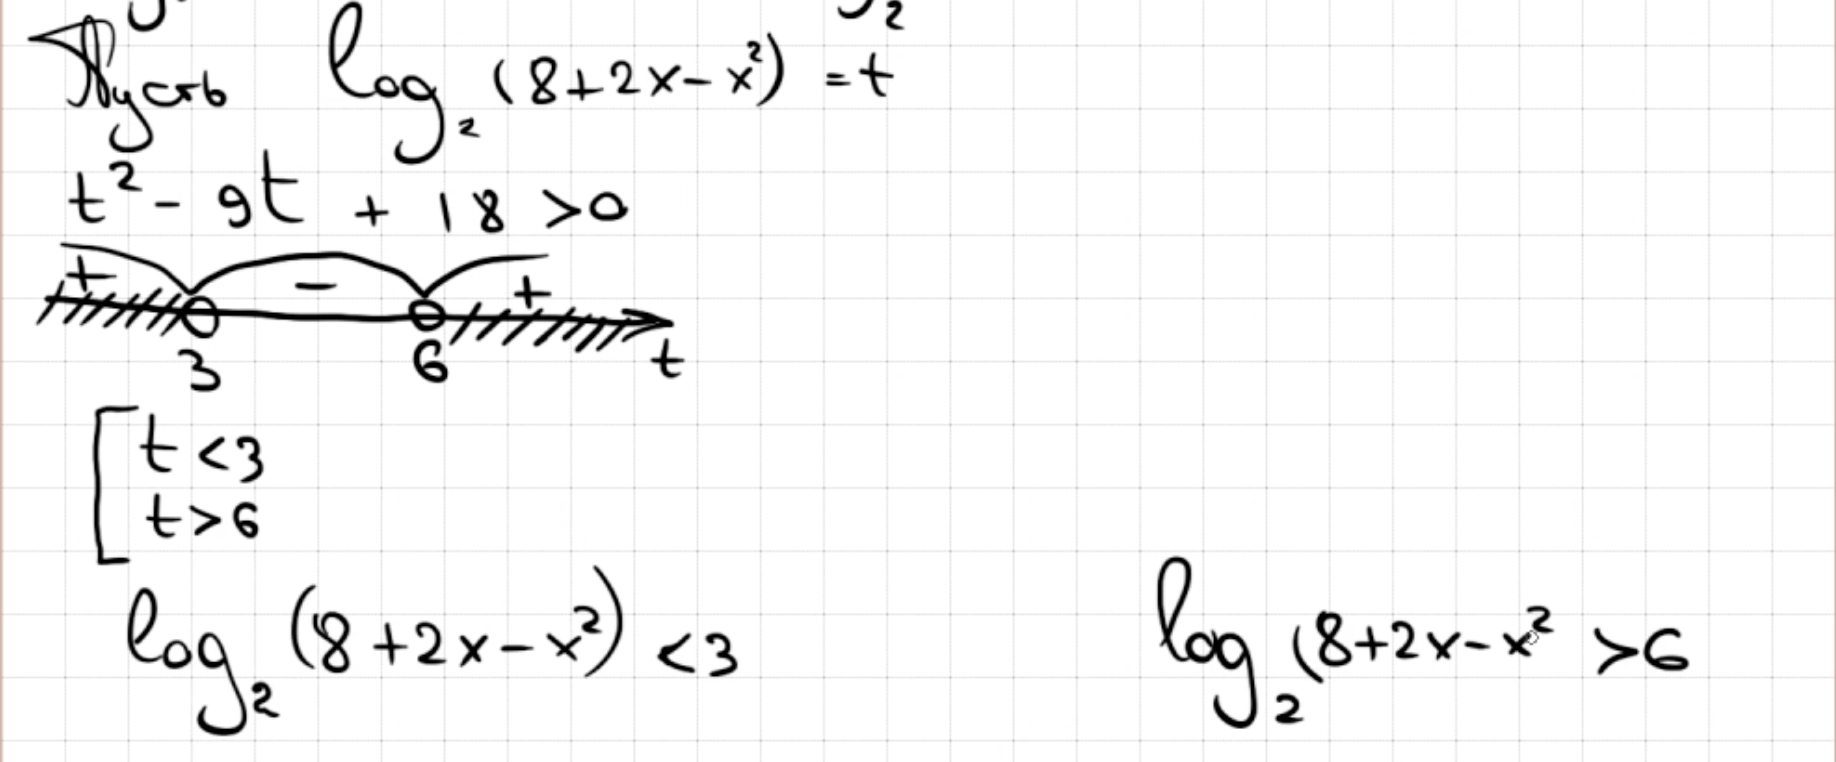 Пусть log₂ (8+2x-x²) = t
t² - 9t + 18 >0
+ - +
3 6 t
[ t <3
t >6
log₂ (8+2x-x²) <3
log₂ (8+2x-x² >6